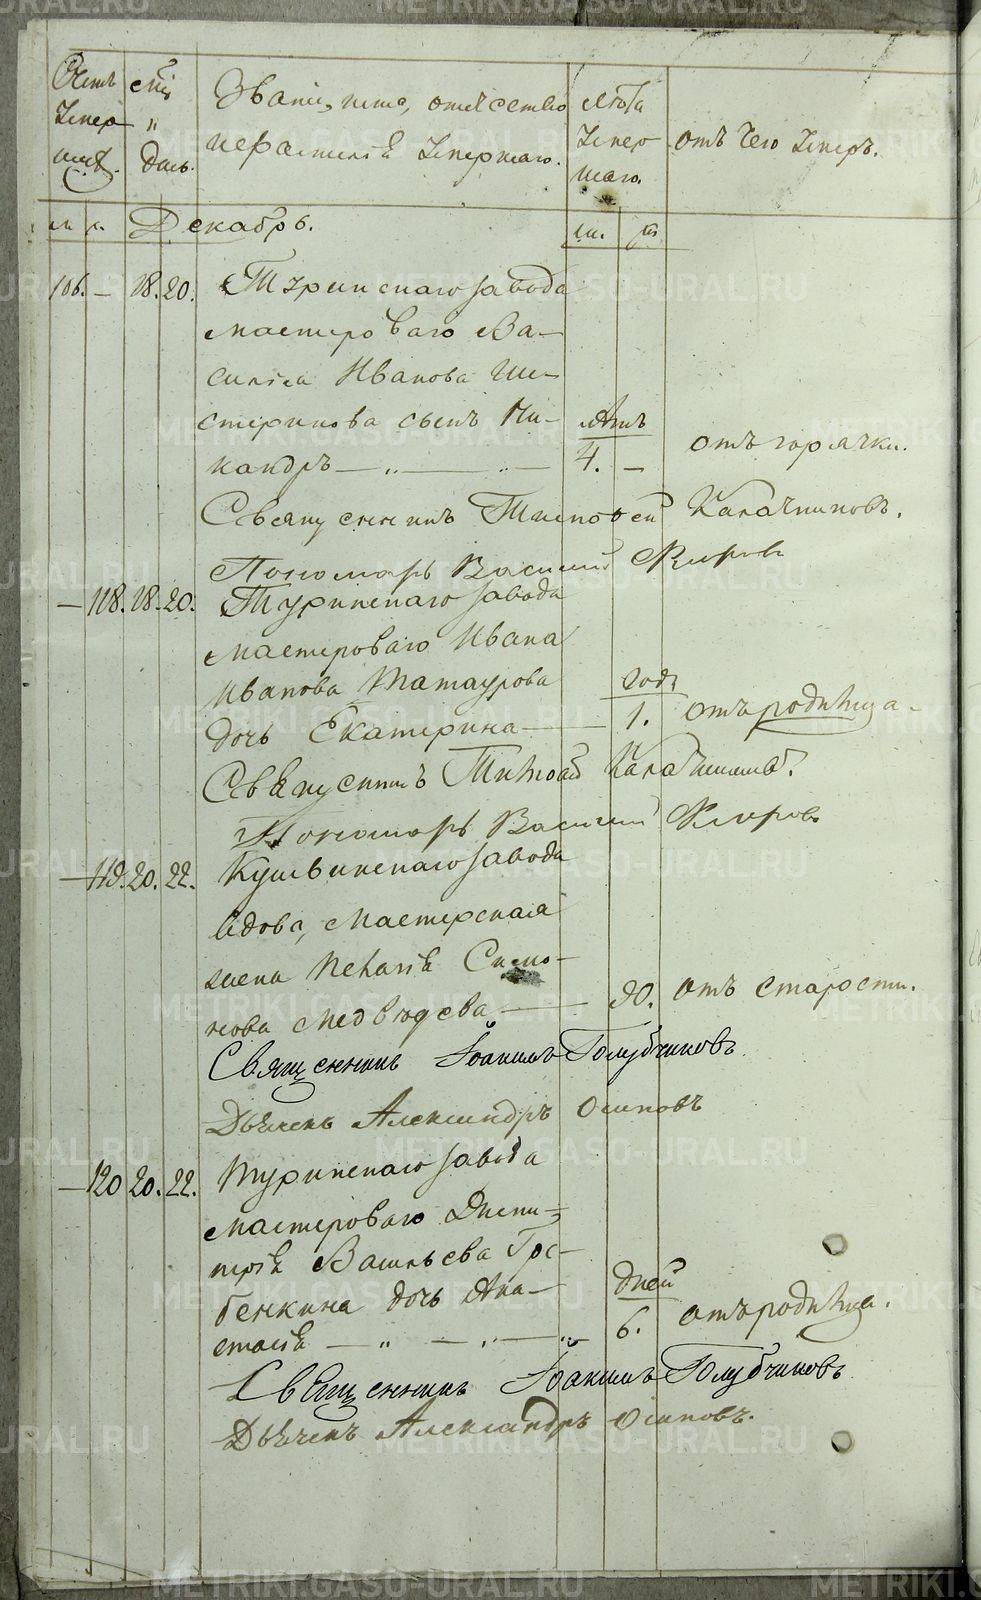 Счетъ мсц Званiе, имя, отечество лѣта
умер „ и фамилiя умершаго. умер отъ чего умеръ.
шихъ. день. шаго.
м ж Декабрь. м. ж
106. — 18. 20. Туринскаго завода
мастероваго Ва-
силiя Иванова Ши-
стерикова сынъ Ни- лѣтъ
кандръ — „ — „ — 4. — отъ горячки.
Священникъ Тимофей Калачниковъ.
Пономарь Василий Флеровъ
— 118. 18. 20. Туринскаго завода
мастероваго Ивана
Иванова Татаурова годъ
дочь Екатерина — 1. отъ родимца.
Священникъ Тимофей Калачниковъ.
Пономарь Василий Флеровъ
— 119. 20. 22. Кушвинскаго завода
вдова, мастерская
жена Пелагiя Симо-
нова Медвѣдева — 90. отъ старости.
Священникъ Iоаннъ Голубчиковъ.
Дьячекъ Александръ Осиповъ
— 120 20. 22. Туринскаго завода
мастероваго Дими-
трiя Васильева Гре-
бенкина дочь Ана- дней
стасiя — „ — „ — „ 6. отъ родимца.
Священникъ Iоаннъ Голубчиковъ.
Дьячекъ Александръ Осиповъ.
METRIKI.GASO-URAL.RU